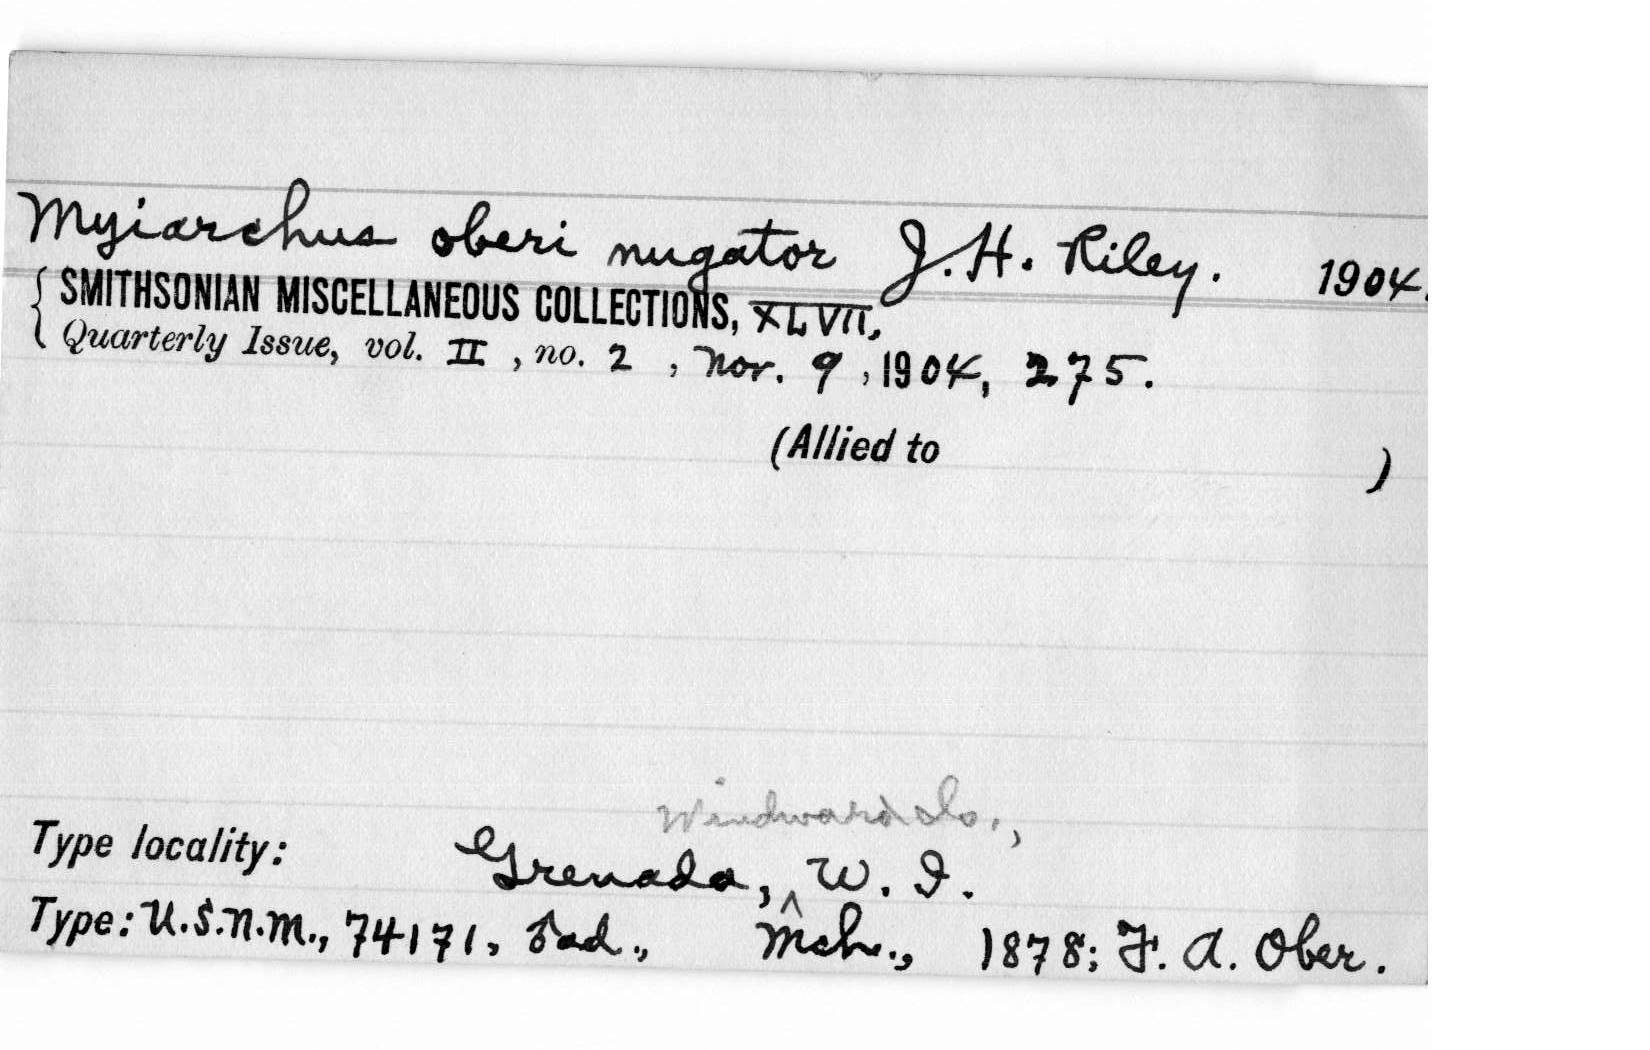 Myiarchus oberi nugator J. H. Riley. 1904.
{ SMITHSONIAN MISCELLANEOUS COLLECTIONS, XLVII,
Quarterly Issue, vol. II, no. 2, Nov. 9, 1904, 275.
(Allied to )
Windward Is.,
Type locality: Grenada, ^ W. I.
Type: U.S.N.M., 74171, ♂ ad., Mch., 1878; F. A. Ober.